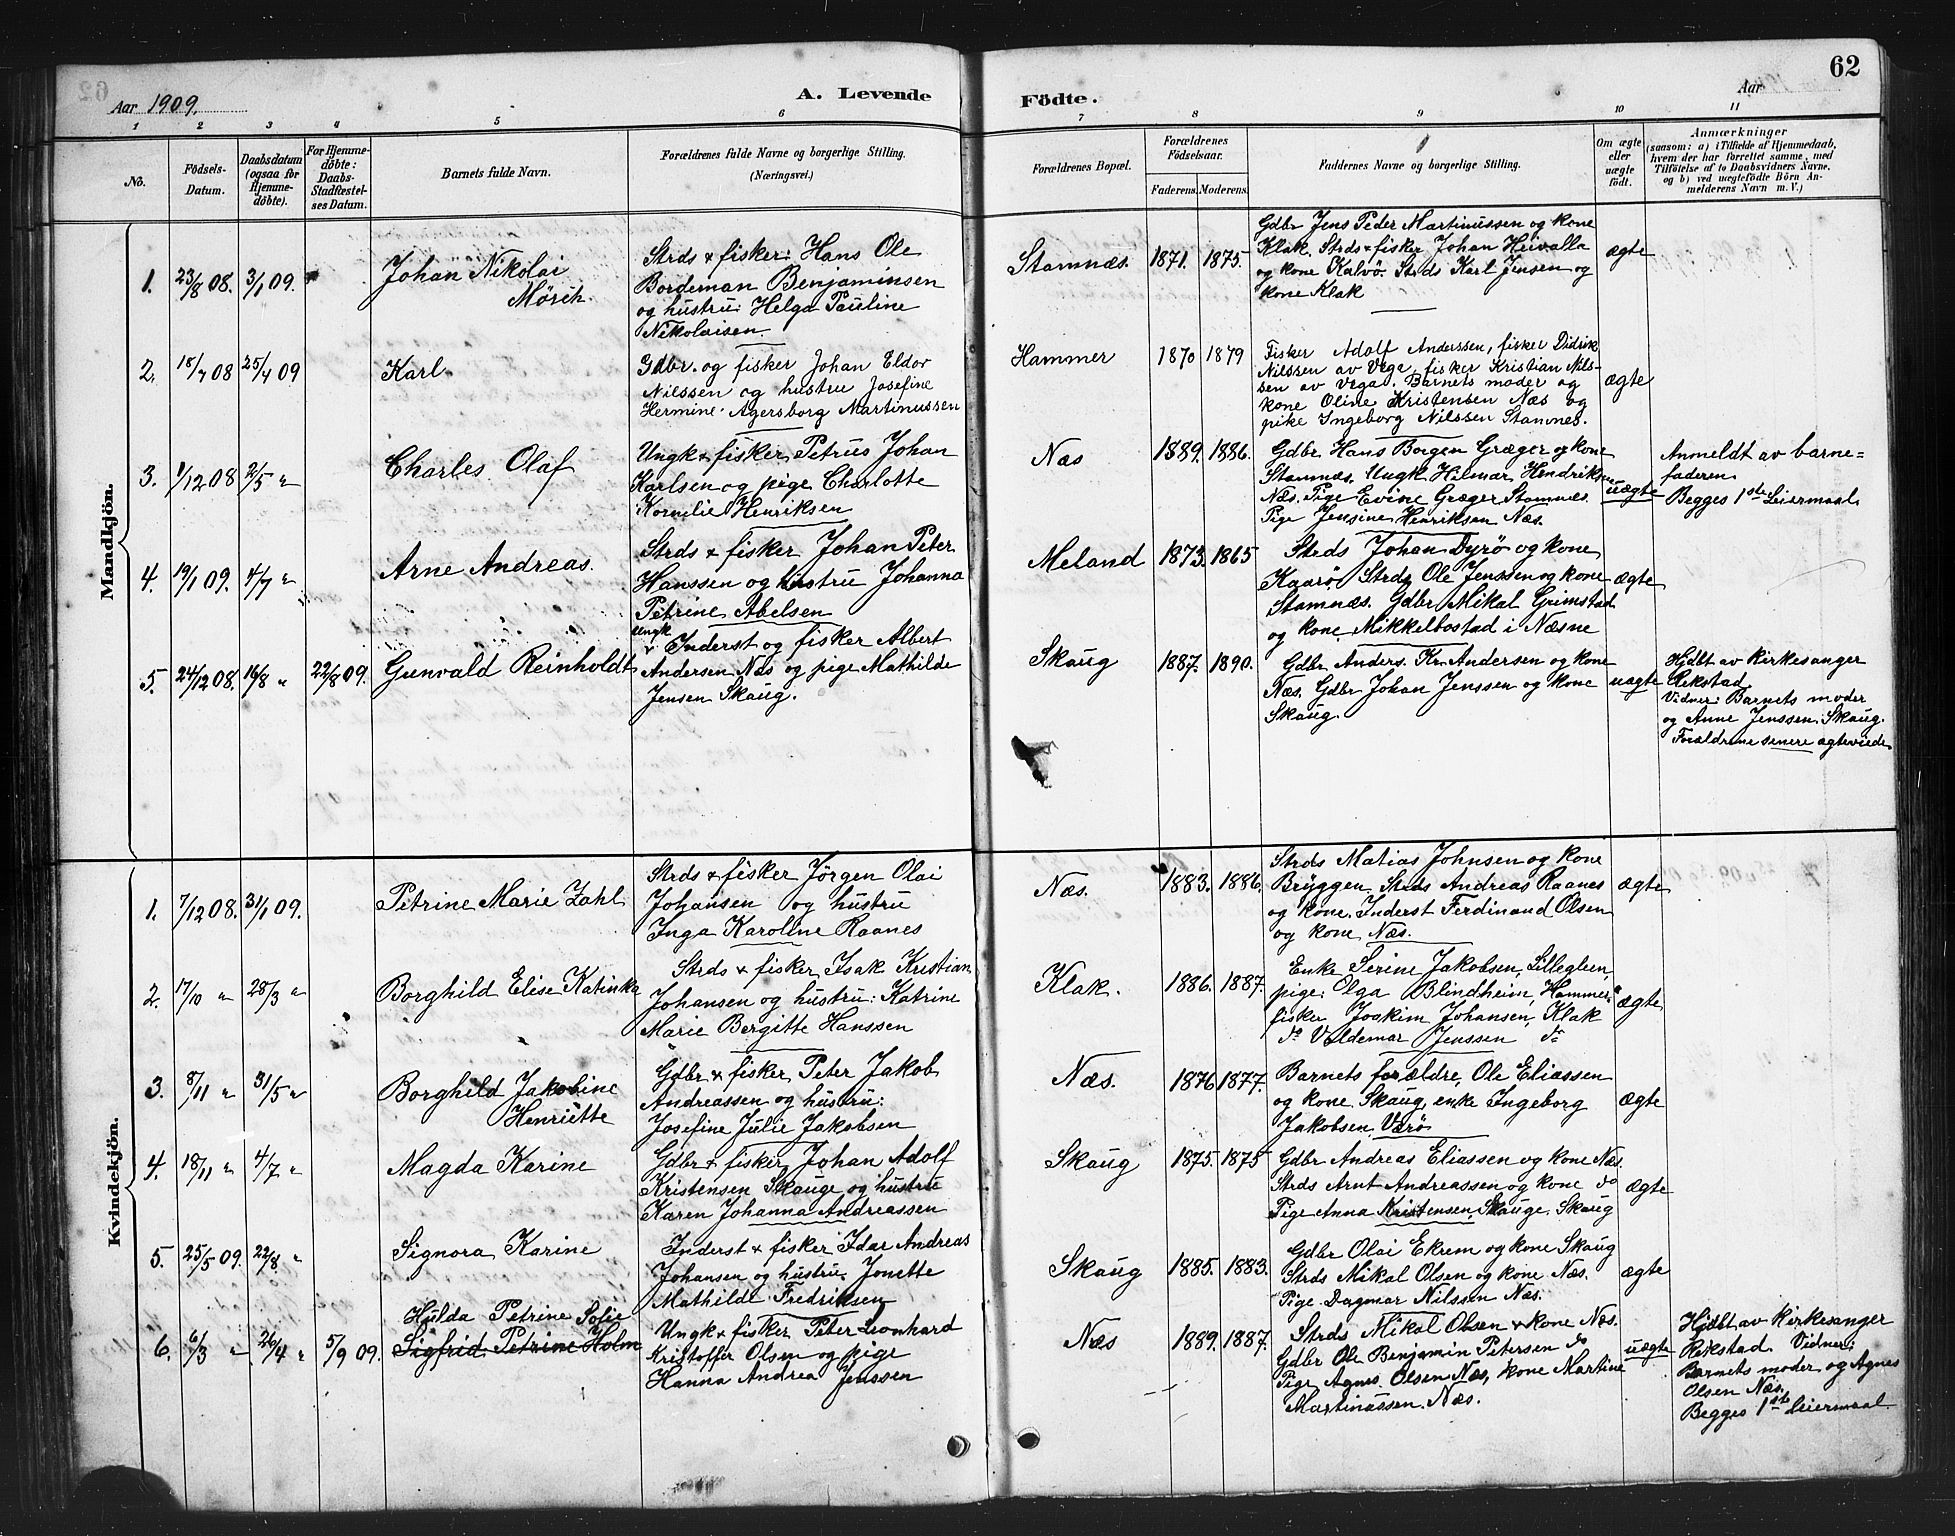 Aar 1909.
A. Levende
Födte.
Aar
62
1 2 3 4 5 6 7 8 9 10 11
No.
Födsels-Datum.
Daabsdatum (ogsaa for Hjemmedöbte).
For Hjemmedöbte: Daabs-Stadfæstelses Datum.
Barnets fulde Navn.
Forældrenes fulde Navne og borgerlige Stilling. (Næringsvei.)
Forældrenes Bopæl.
Forældrenes Födselsaar.
Faderens. Moderens.
Faddernes Navne og borgerlige Stilling.
Om ægte eller uægte födt.
Anmærkninger
(saasom: a) i Tilfælde af Hjemmedaab,
hvem der har forrettet samme, med
Tilföielse af to Daabsvidners Navne,
og b) ved uægtefödte Börn An-
melderens Navn m. V.)
Mandkjön.
1. 23/8 08. 3/1 09.
Johan Nikolai
Mörch.
Strds & fisker: Hans Ole
Bordeman Benjaminsen
og hustru: Helga Pauline
Nikolaisen.
Stamnæs. 1871. 1875.
Gdbr Jens Peder Martinussen og kone
Klak. Strds & fisker Johan Heivalla
og kone Kalvö. Strds Karl Jensen og
kone Klak
ægte
2. 18/7 08 25/4 09
Karl
Gdbr. og fisker Johan Eldor
Nilssen og hustru Josefine
Hermine Agersborg Martinussen
Hammer 1870 1879
Fisker Adolf Anderssen, fisker Didrik
Nilssen av Vega, fisker Kristian Nils-
sen av Vega. Barnets moder og
kone Oline Kristensen Næs og
pike Ingeborg Nilssen Stamnes.
ægte
3. 1/12 08 2/5 "
Charles Olaf
Ungk & fisker Petrus Johan
Karlsen og pige Charlotte
Kornelie Henriksen
Næs 1889. 1886.
Gdbr Hans Borgen Græger og kone
Stamnæs. Ungk Hilmar Hendriksen
Næs. Pige Evine Græger Stamnæs.
Pige Jensine Henriksen Næs.
uægte
Anmeldt av barne=
faderen.
Begges 1ste Leiermaal
4. 19/1 09. 4/7 "
Arne Andreas.
Strds & fisker Johan Peter
Hanssen og hustru Johanna
Petrine Abelsen
Meland 1873. 1865
Strds Johan Dyrö og kone
Kaarö. Strds Ole Jenssen og kone
Stamnæs. Gdbr Mikal Grimstad
og kone Mikkelbostad i Næsne
ægte
5. 24/12 08. 16/8 " 22/8 09.
Gunvald Reinholdt
Ungk
& Inderst og fisker Albert
Andersen Næs og pige Mathilde
Jensen Skaug.
Skaug 1887. 1890.
Gdbr Anders Kr. Andersen og kone
Næs. Gdbr Johan Jenssen og kone
Skaug.
uægte
Hjdbt av kirkesanger
Rekstad.
Vidner: Barnets moder
og Anne Jenssen Skaug.
Forældrene senere ægteviede
Kvindekjön.
1. 7/12 08. 31/1 09.
Petrine Marie Zahl
Strds & fisker Jörgen Olai
Johansen og hustru
Inga Karoline Raanes
Næs. 1883. 1886.
Strds Matias Johnsen og kone
Bryggen. Strds Andreas Raanes
og kone. Inderst Ferdinand Olsen
og kone Næs.
ægte
2. 17/10 " 28/3 "
Borghild Elise Katinka
Strds & fisker Isak Kristian
Johansen og hustru: Katrine
Marie Bergitte Hanssen
Klak. 1886. 1887.
Enke Serine Jakobsen, Lilleglein,
pige: Olga Blindheim, Hammer
fisker Joakim Johansen, Klak
do Valdemar Jenssen do
ægte
3. 8/11 " 31/5 "
Borghild Jakobine
Henriette
Gdbr & fisker Peter Jakob
Andreassen og hustru:
Josefine Julie Jakobsen
Næs. 1876 1877.
Barnets forældre, Ole Eliassen
og kone Skaug, enke Ingeborg
Jakobsen Værö
ægte
4. 18/11 " 4/7 "
Magda Karine
Gdbr & fisker Johan Adolf
Kristensen Skauge og hustru
Karen Johanna Andreassen
Skaug 1875. 1875
Gdbr Andreas Eliassen og kone Næs.
Strds Arnt Andreassen og kone do
Pige Anna Kristensen Skauge. Skaug
ægte
5. 25/5 09. 22/8. "
Signora Karine
Inderst & fisker Idar Andreas
Johansen og hustru Jonette
Mathilde Fredriksen
Skaug 1885. 1883.
Gdbr Olai Ekrem og kone Skaug
Strds Mikal Olsen og kone Næs.
Pige Dagmar Nilssen Næs.
ægte
6. 6/3 " 26/4 " 5/9 09.
Hulda Petrine Sofie
Sigfrid Petrine Holm
Ungk & fisker Peter Leonhard
Kristoffer Olsen og pige
Hanna Andrea Jenssen
Næs 1889. 1887.
Strds Mikal Olsen & kone Næs.
Gdbr Ole Benjamin Petersen do
Pige Agnes Olsen Næs, kone Martine
Martinussen. Næs.
uægte
Hjdbt av kirkesanger
Rekstad. Vidner:
Barnets moder og Agnes
Olsen Næs.
Begges 1ste Leiermaal.